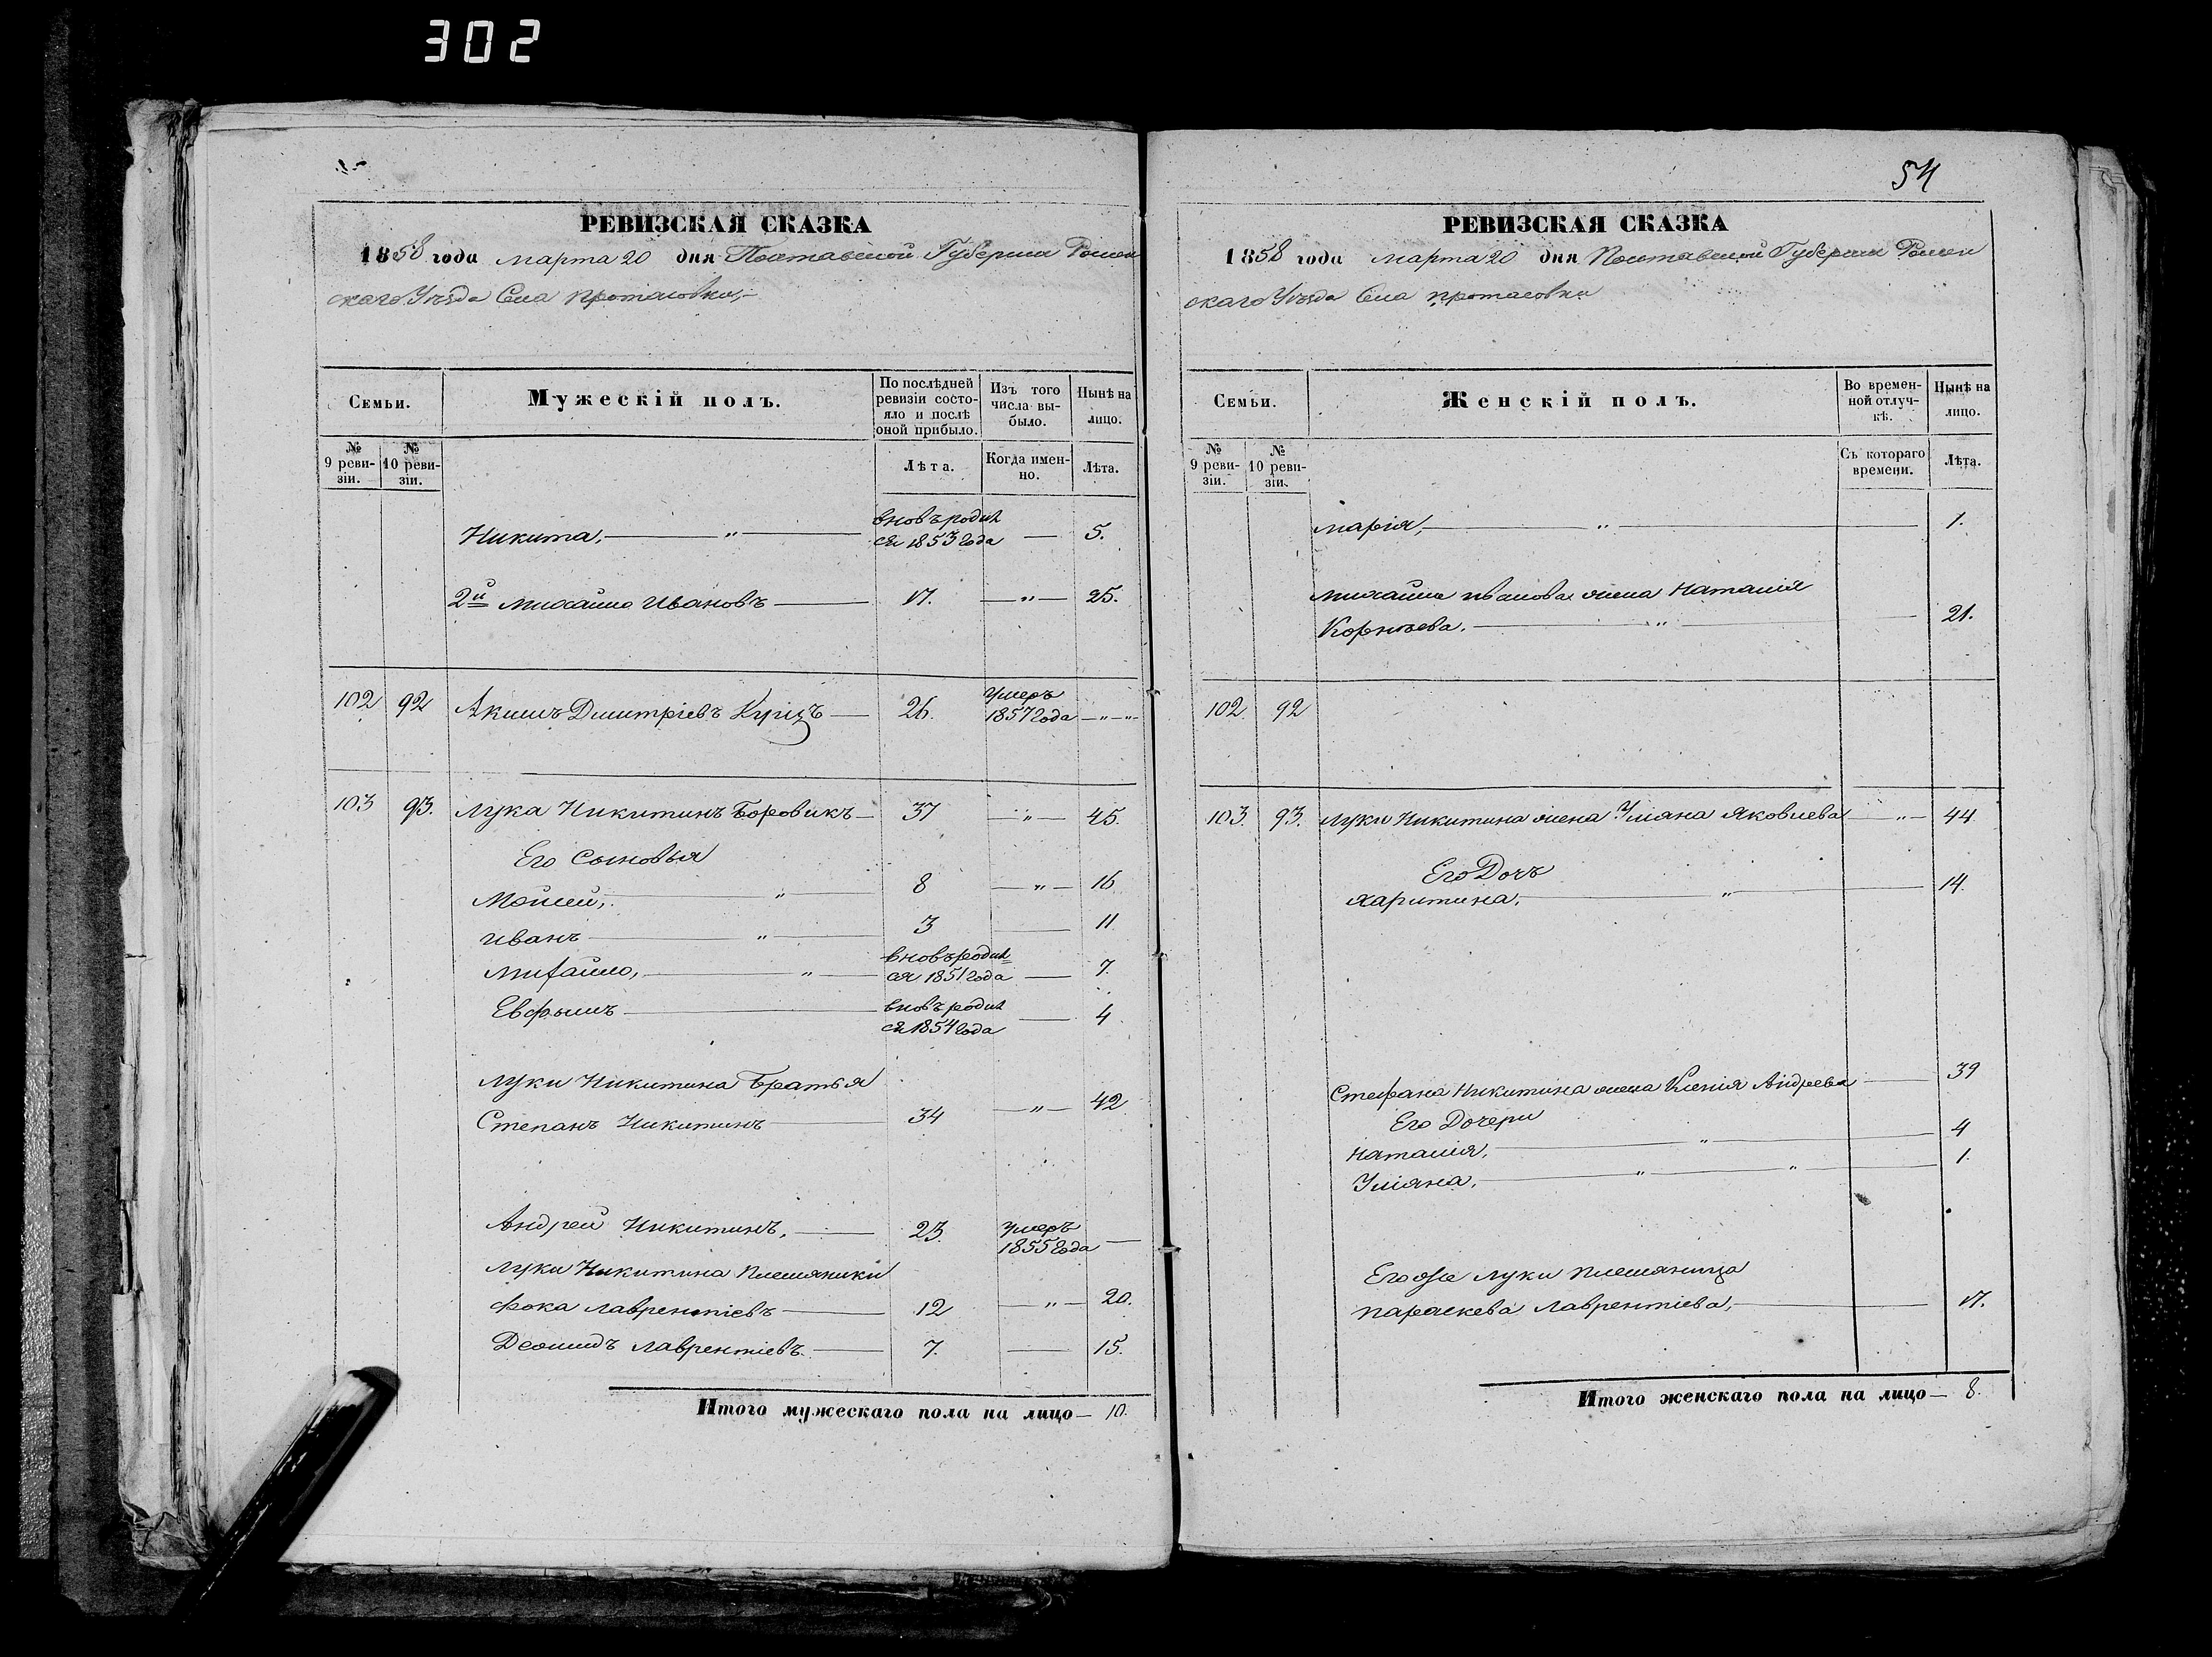 302
РЕВИЗСКАЯ СКАЗКА
1858 года марта 20 дня Полтавской Губернии Ромен
скаго Уѣзда Села Протасовки,
Семьи.
Мужескій полъ.
По послѣдней ревизіи состояло и послѣ оной прибыло.
Изъ того числа выбыло.
Нынѣ на лицо.
№ 9 ревизіи.
№ 10 ревизіи.
Лѣта.
Когда именно.
Лѣта.
Никита, — " — вновь родил
ся 1853 года — 5.
2й Михайло Ивановъ — 17. — " — 25.
102 92 Акимъ Дмитріевъ — 26. умеръ
1857 года — " — " —
103 93. Лука Никитинъ Боровикъ — 37 — " — 45.
Его сыновья
Моисей, — " — 8 — " — 16
Иванъ — " — 3 — 11.
Михайло, — " — вновь родил
ся 1851 года — 7.
Евфимъ — вновь родил
ся 1854 года — 4
Луки Никитина Братья
Степанъ Никитинъ — 34 — " — 42
Андрей Никитинъ, — 23. умеръ
1855 года —
Луки Никитина племяники
Фока Лаврентіевъ — 12 — " — 20.
Леонидъ Лаврентіевъ. — 7. — 15.
Итого мужескаго пола на лицо — 10.
54
РЕВИЗСКАЯ СКАЗКА
1858 года марта 20 дня Полтавской Губерніи Ромен
скаго Уѣзда Села Протасовки
Семьи.
Женскій полъ.
Во временной отлучкѣ.
Нынѣ на лицо.
№ 9 ревизіи.
№ 10 ревизіи.
Съ котораго времени.
Лѣта.
Марія, — " — 1.
Михайла Иванова жена Наталія
Корнѣева. — " — 21.
102 92
103. 93. Луки Никитина жена Уліяна Яковлева — " — 44
Его Дочь
Харитина, — " — 14.
Стефана Никитина жена Ксенія Андреева — 39
Его Дочери
Наталія, — " — 4
Уліяна, — " — " — 1.
Его же Луки племяница
Параскева Лаврентіева, — 17.
Итого женскаго пола на лицо — 8.